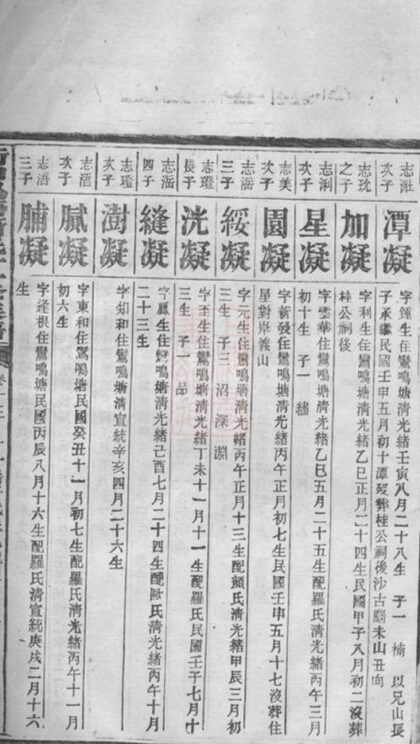 志沚
次子
潭凝
字鍾生住鸞鳴塘清光緒壬寅八月二十八生 子一 楠 以兄山長
子承繼民國壬申五月初十潭歿葬桂公祠後沙古腦未山丑向
志玧
之子
加凝
字利生住鸞鳴塘清光緒乙巳正月二十四生民國甲子八月初二沒葬
桂公祠後
志浰
次子
星凝
字雲華住鸞鳴塘清光緒乙巳五月二十五生配羅氏清光緒丙午三月
初十生 子一
志美
次子
園凝
字新發住鸞鳴塘清光緒丙午正月初七生民國壬申五月十七沒葬住
星對岸義山
志湢
三子
綏凝
字元生住鸞鳴塘清光緒丙午正月十三生配顏氏清光緒甲辰三月初
三生 子三 沼 深 淵
志璒
長子
洸凝
字 生住鸞鳴塘清光緒丁未十一月十一生配羅氏民國壬子七月十
三生 子一 品
志湢
四子
縫凝
字鳳生住鸞鳴塘清光緒己酉七月二十四生配歐氏清光緒丙午十月
二十三生
志璒
次子
澍凝
字知和住鸞鳴塘清宣統辛亥四月二十六生
志浯
次子
膩凝
字東和住鸞鳴塘民國癸丑十一月初七生配羅氏清光緒丙午十一月
初六生
志浯
三子
脯凝
字逢根住鸞鳴塘民國丙辰八月十六生配羅氏清宣統庚戌二月十六
生